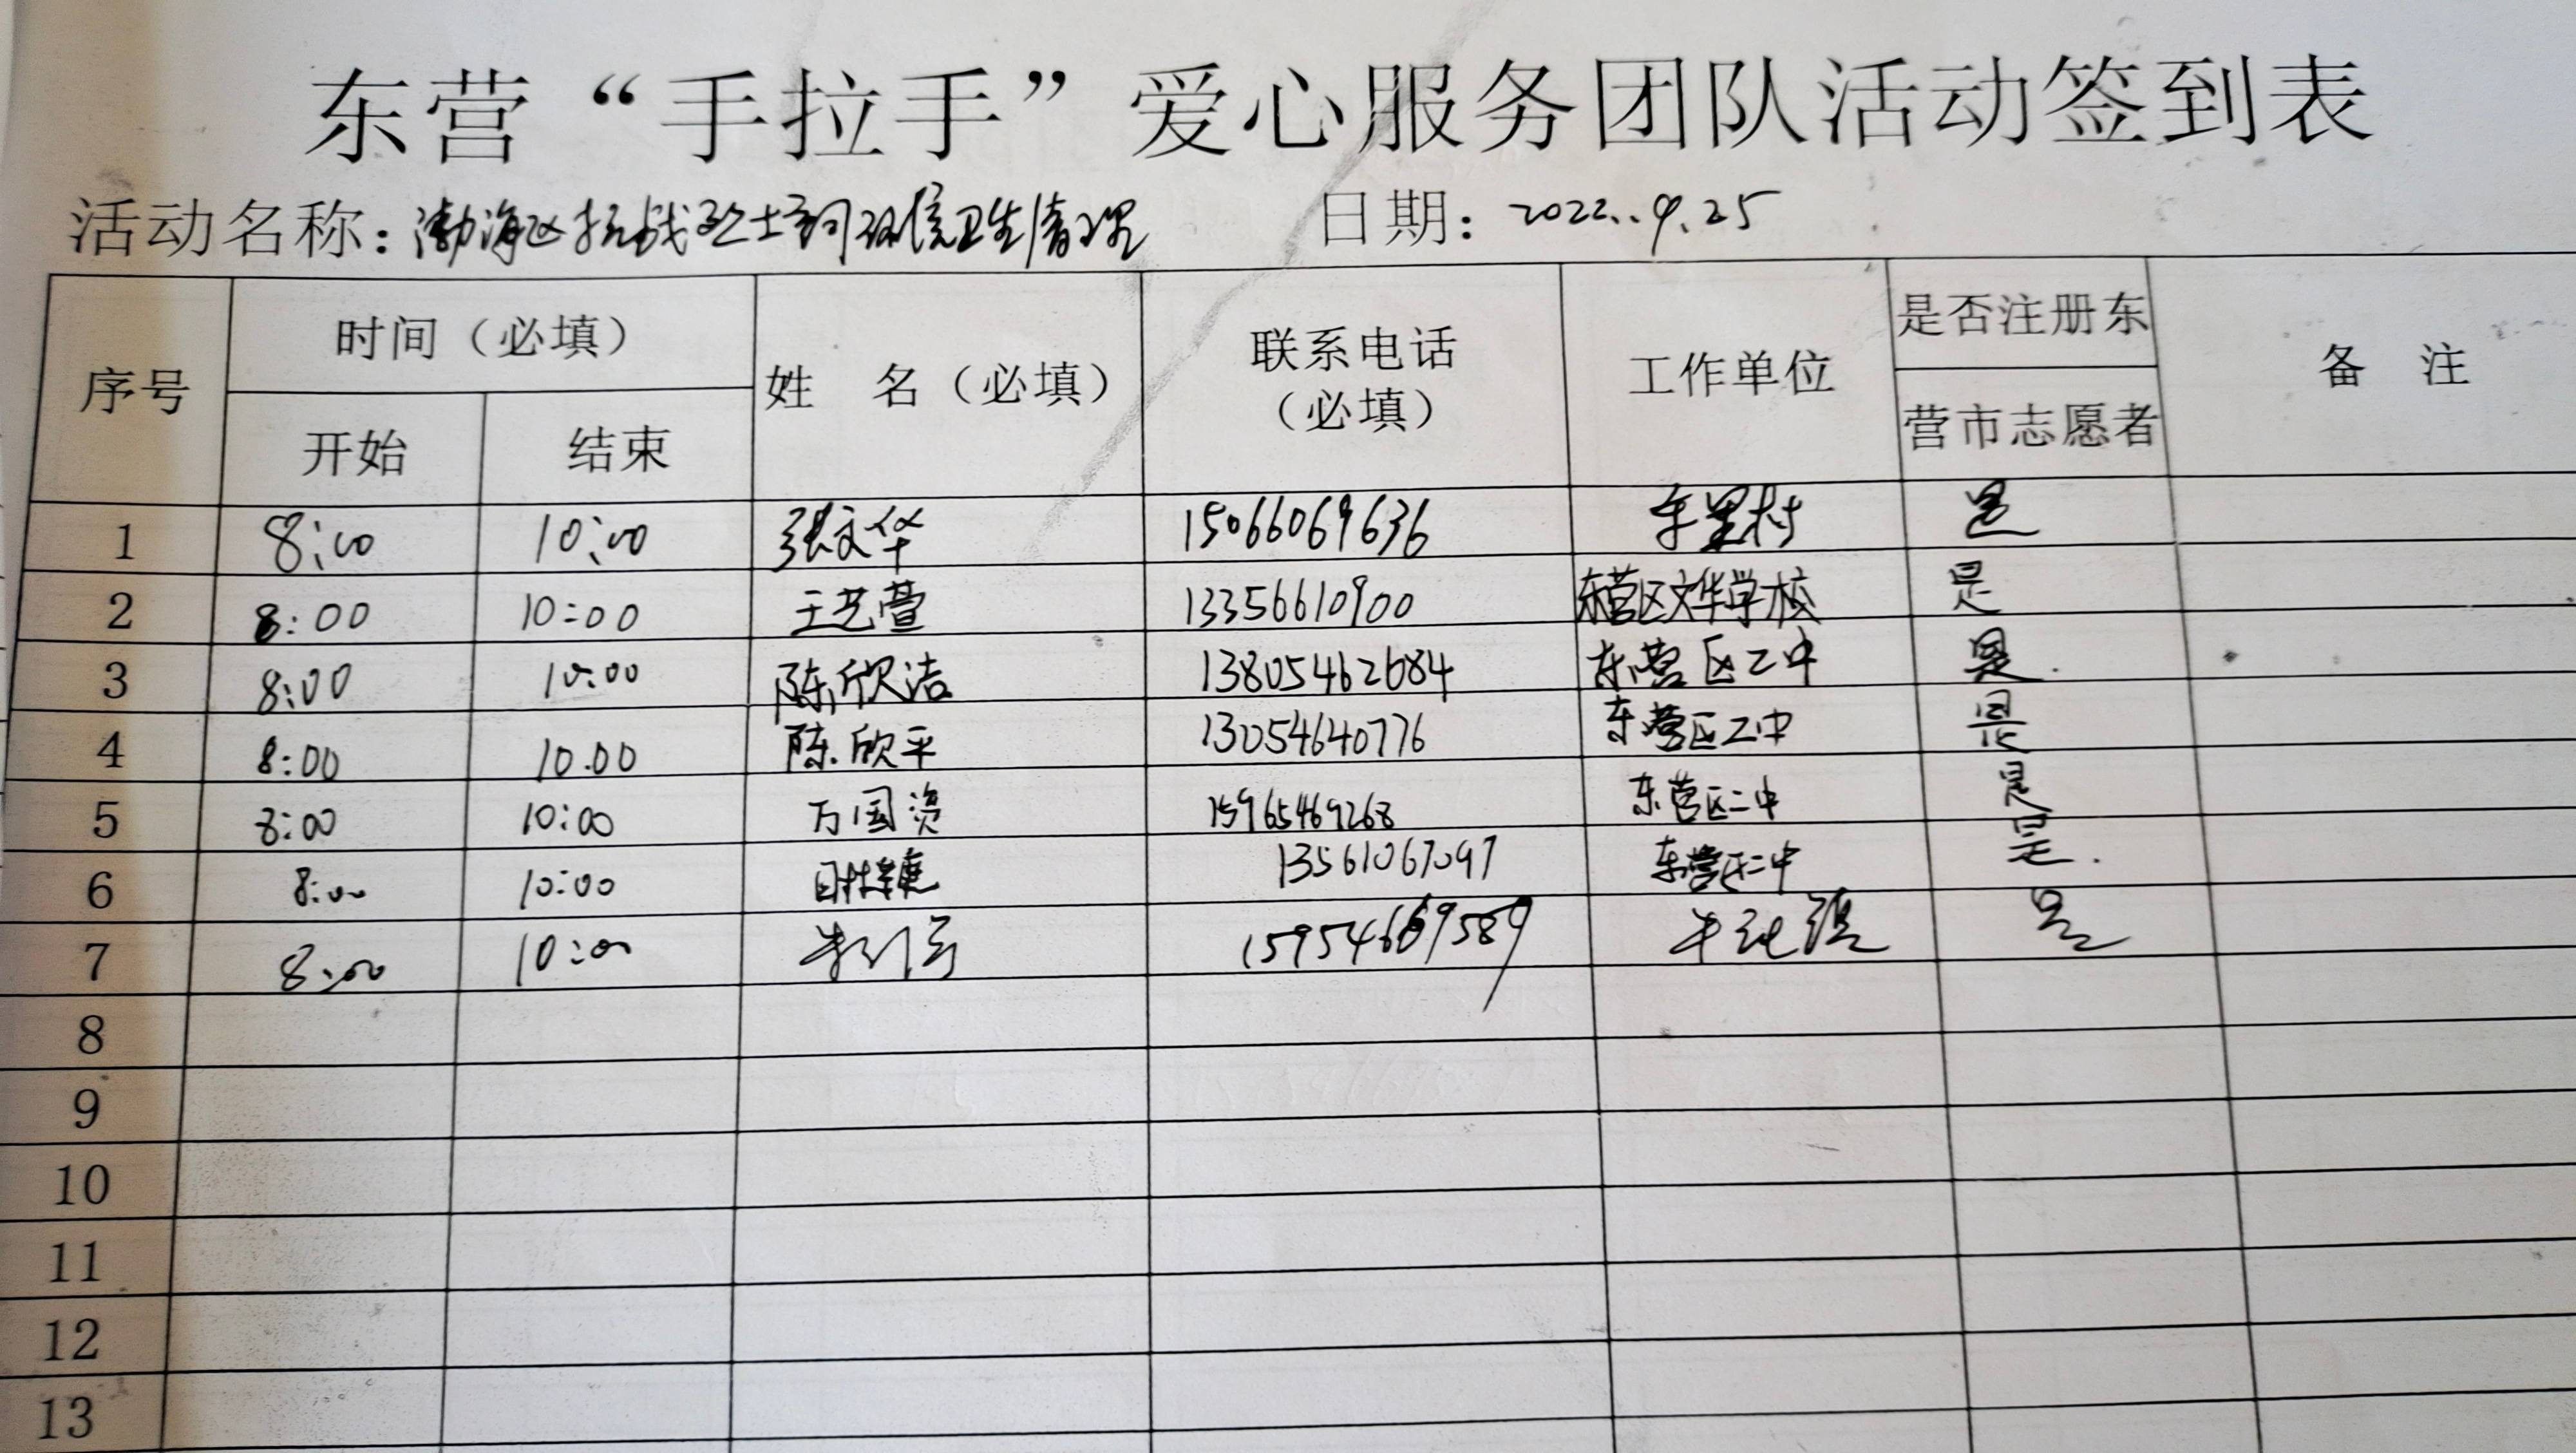 东营“手拉手”爱心服务团队活动签到表
活动名称：渤海区抗战烈士祠环境卫生清理 日期：2022..9.25
序号 时间（必填） 姓 名（必填） 联系电话（必填） 工作单位 是否注册东营市志愿者 备 注
开始 结束
1 8:00 10:00 张文华 15066069636 是
2 8:00 10:00 王艺萱 13356610900 东营区文华学校 是
3 8:00 10:00 陈欣洁 13805462684 东营区二中 是.
4 8:00 10.00 陈欣平 13054640776 东营区二中 是
5 8:00 10:00 万国资 15965469268 东营区二中 是
6 8:00 10:00 13561067097 东营区二中 是.
7 8:00 10:00 15954669589 牛庄镇 是
8
9
10
11
12
13